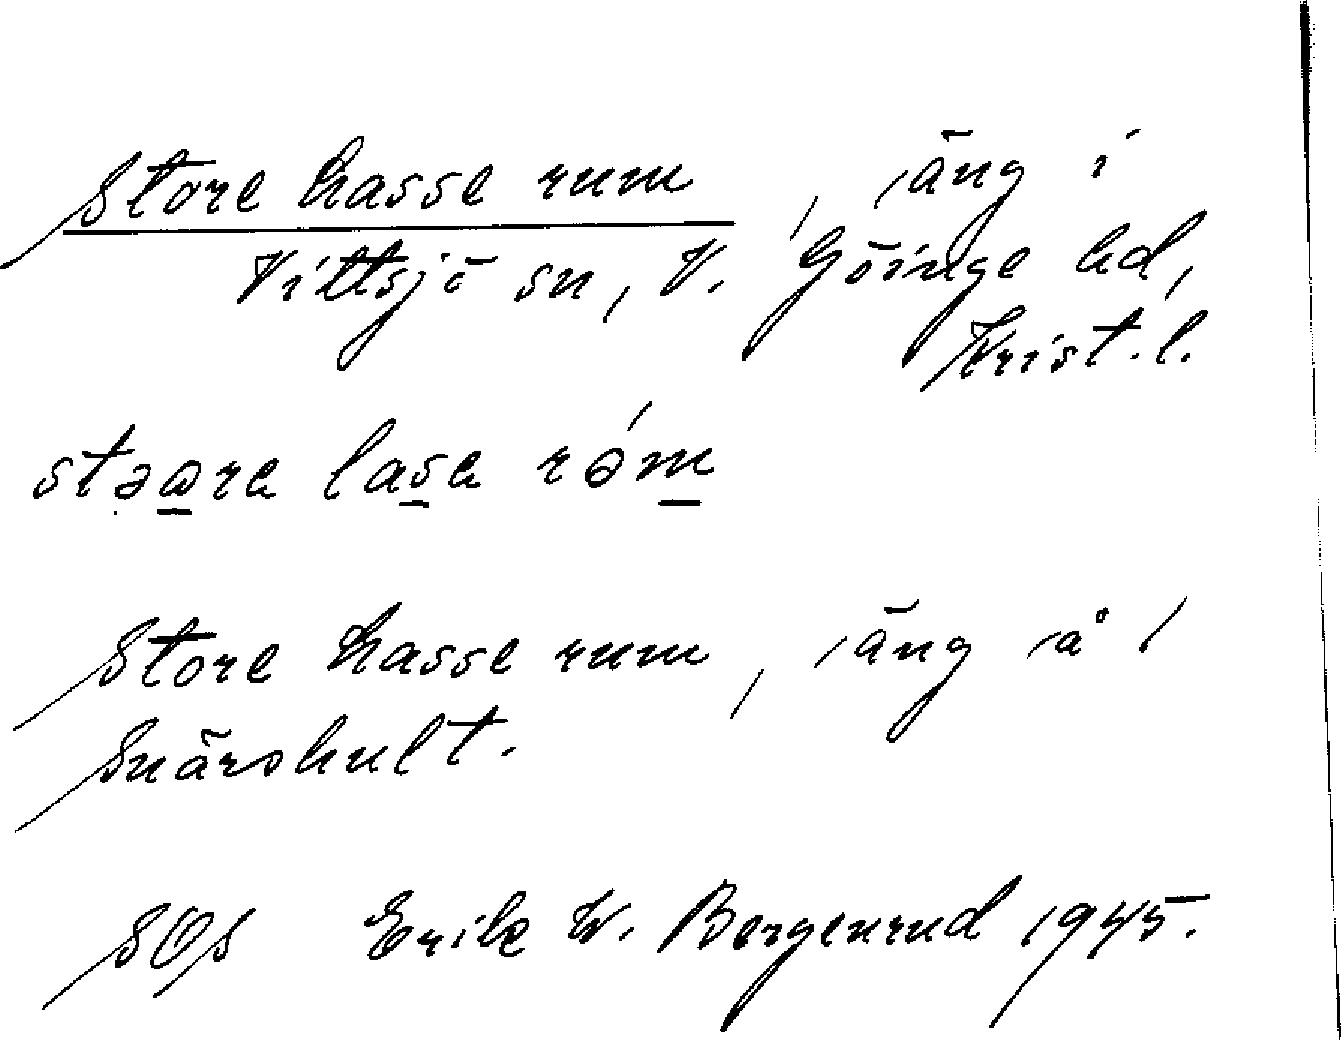 Store hasse rum, äng i
Vittsjö sn, V. Göinge hd,
Krist. l.
stəare lasa róm
Store hasse rum, äng å /
Snärshult.
SOS Erik W. Bergenrud 1945.